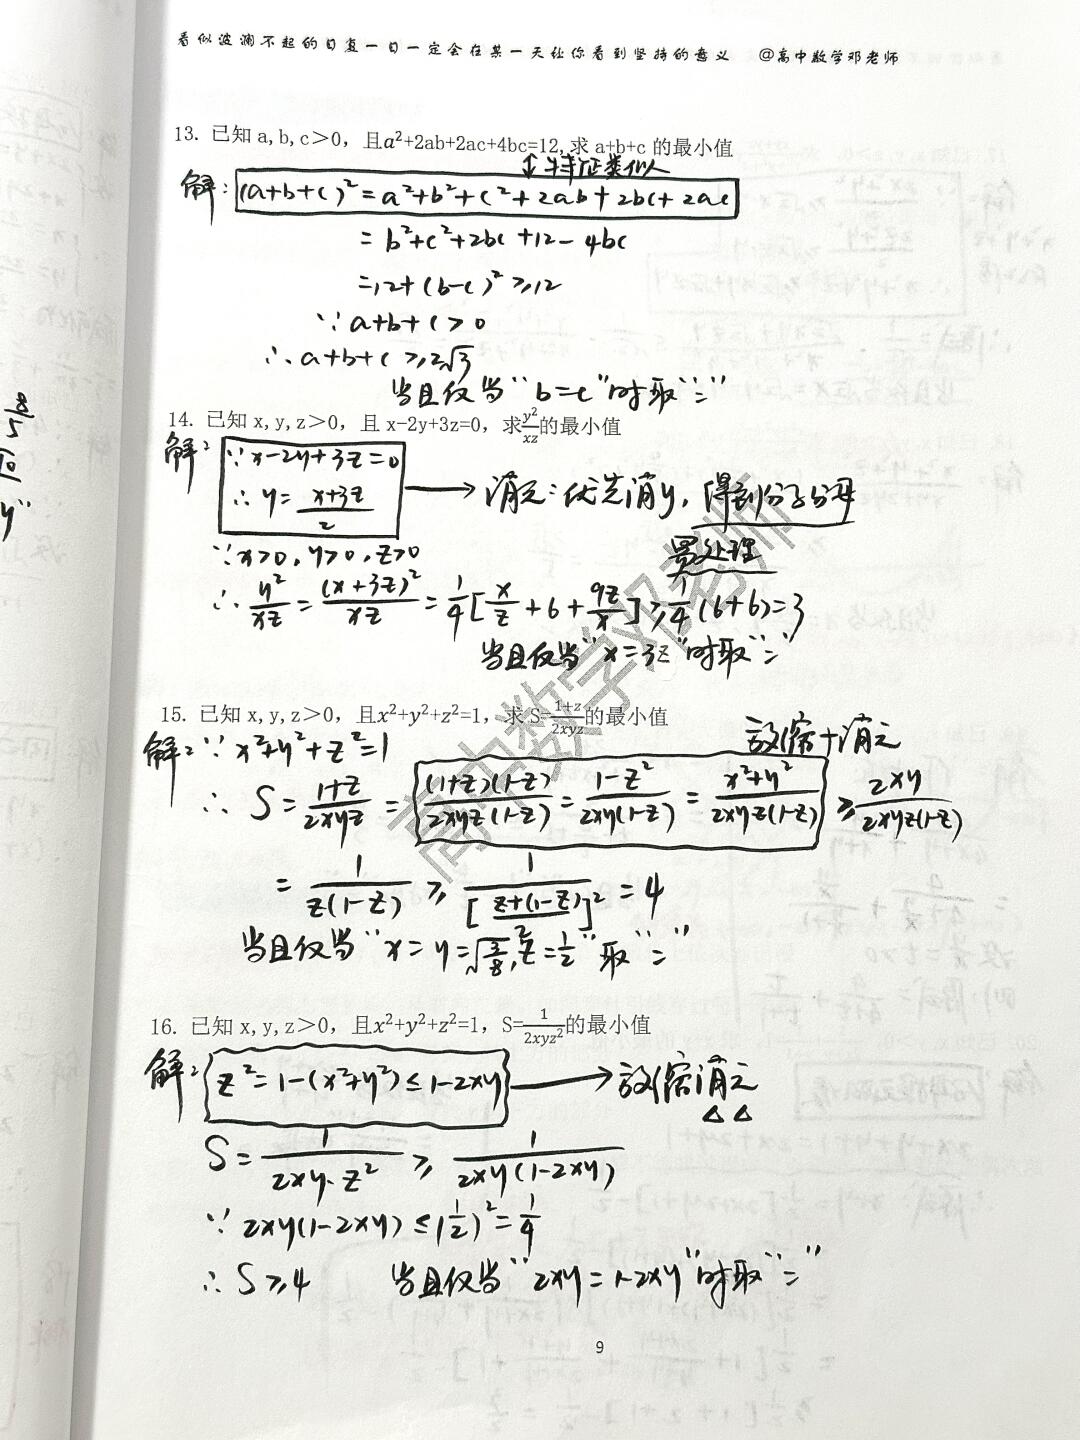 看似波澜不起的日复一日一定会在某一天让你看到坚持的意义 @高中数学邓老师
13. 已知 a,b,c＞0，且a²+2ab+2ac+4bc=12,求 a+b+c 的最小值
↕特征类似
解: (a+b+c)²=a²+b²+c²+2ab+2bc+2ac
=b²+c²+2bc+12-4bc
=12+(b-c)²≥12
∵a+b+c>0
∴a+b+c≥2√3
当且仅当"b=c"时取"="
14. 已知 x,y,z＞0，且 x-2y+3z=0，求y²/xz的最小值
解: ∵x-2y+3z=0
∴y=(x+3z)/2 → 消元:优先消y,得到分子分母
∵x>0,y>0,z>0 幂处理
∴y²/xz=(x+3z)²/xz=1/4[x/z+6+9z/x]≥1/4(6+6)=3
当且仅当"x=3z"时取"="
15. 已知 x,y,z＞0，且x²+y²+z²=1，求 S=(1+z)/2xyz的最小值
解: ∵x²+y²+z²=1 放缩+消元
∴S=(1+z)/2xyz=(1+z)(1-z)/2xyz(1-z)=(1-z²)/2xy(1-z)=(x²+y²)/2xyz(1-z)≥2xy/2xyz(1-z)
=1/z(1-z)≥1/[(z+(1-z))/2]²=4
当且仅当"x=y=√(3/8),z=1/2"取"="
16. 已知 x,y,z＞0，且x²+y²+z²=1，S=1/2xyz²的最小值
解: z²=1-(x²+y²)≤1-2xy → 放缩消元
S=1/2xy·z²≥1/2xy(1-2xy)
∵2xy(1-2xy)≤(1/2)²=1/4
∴S≥4 当且仅当"2xy=1-2xy"时取"="
9
高中数学邓老师